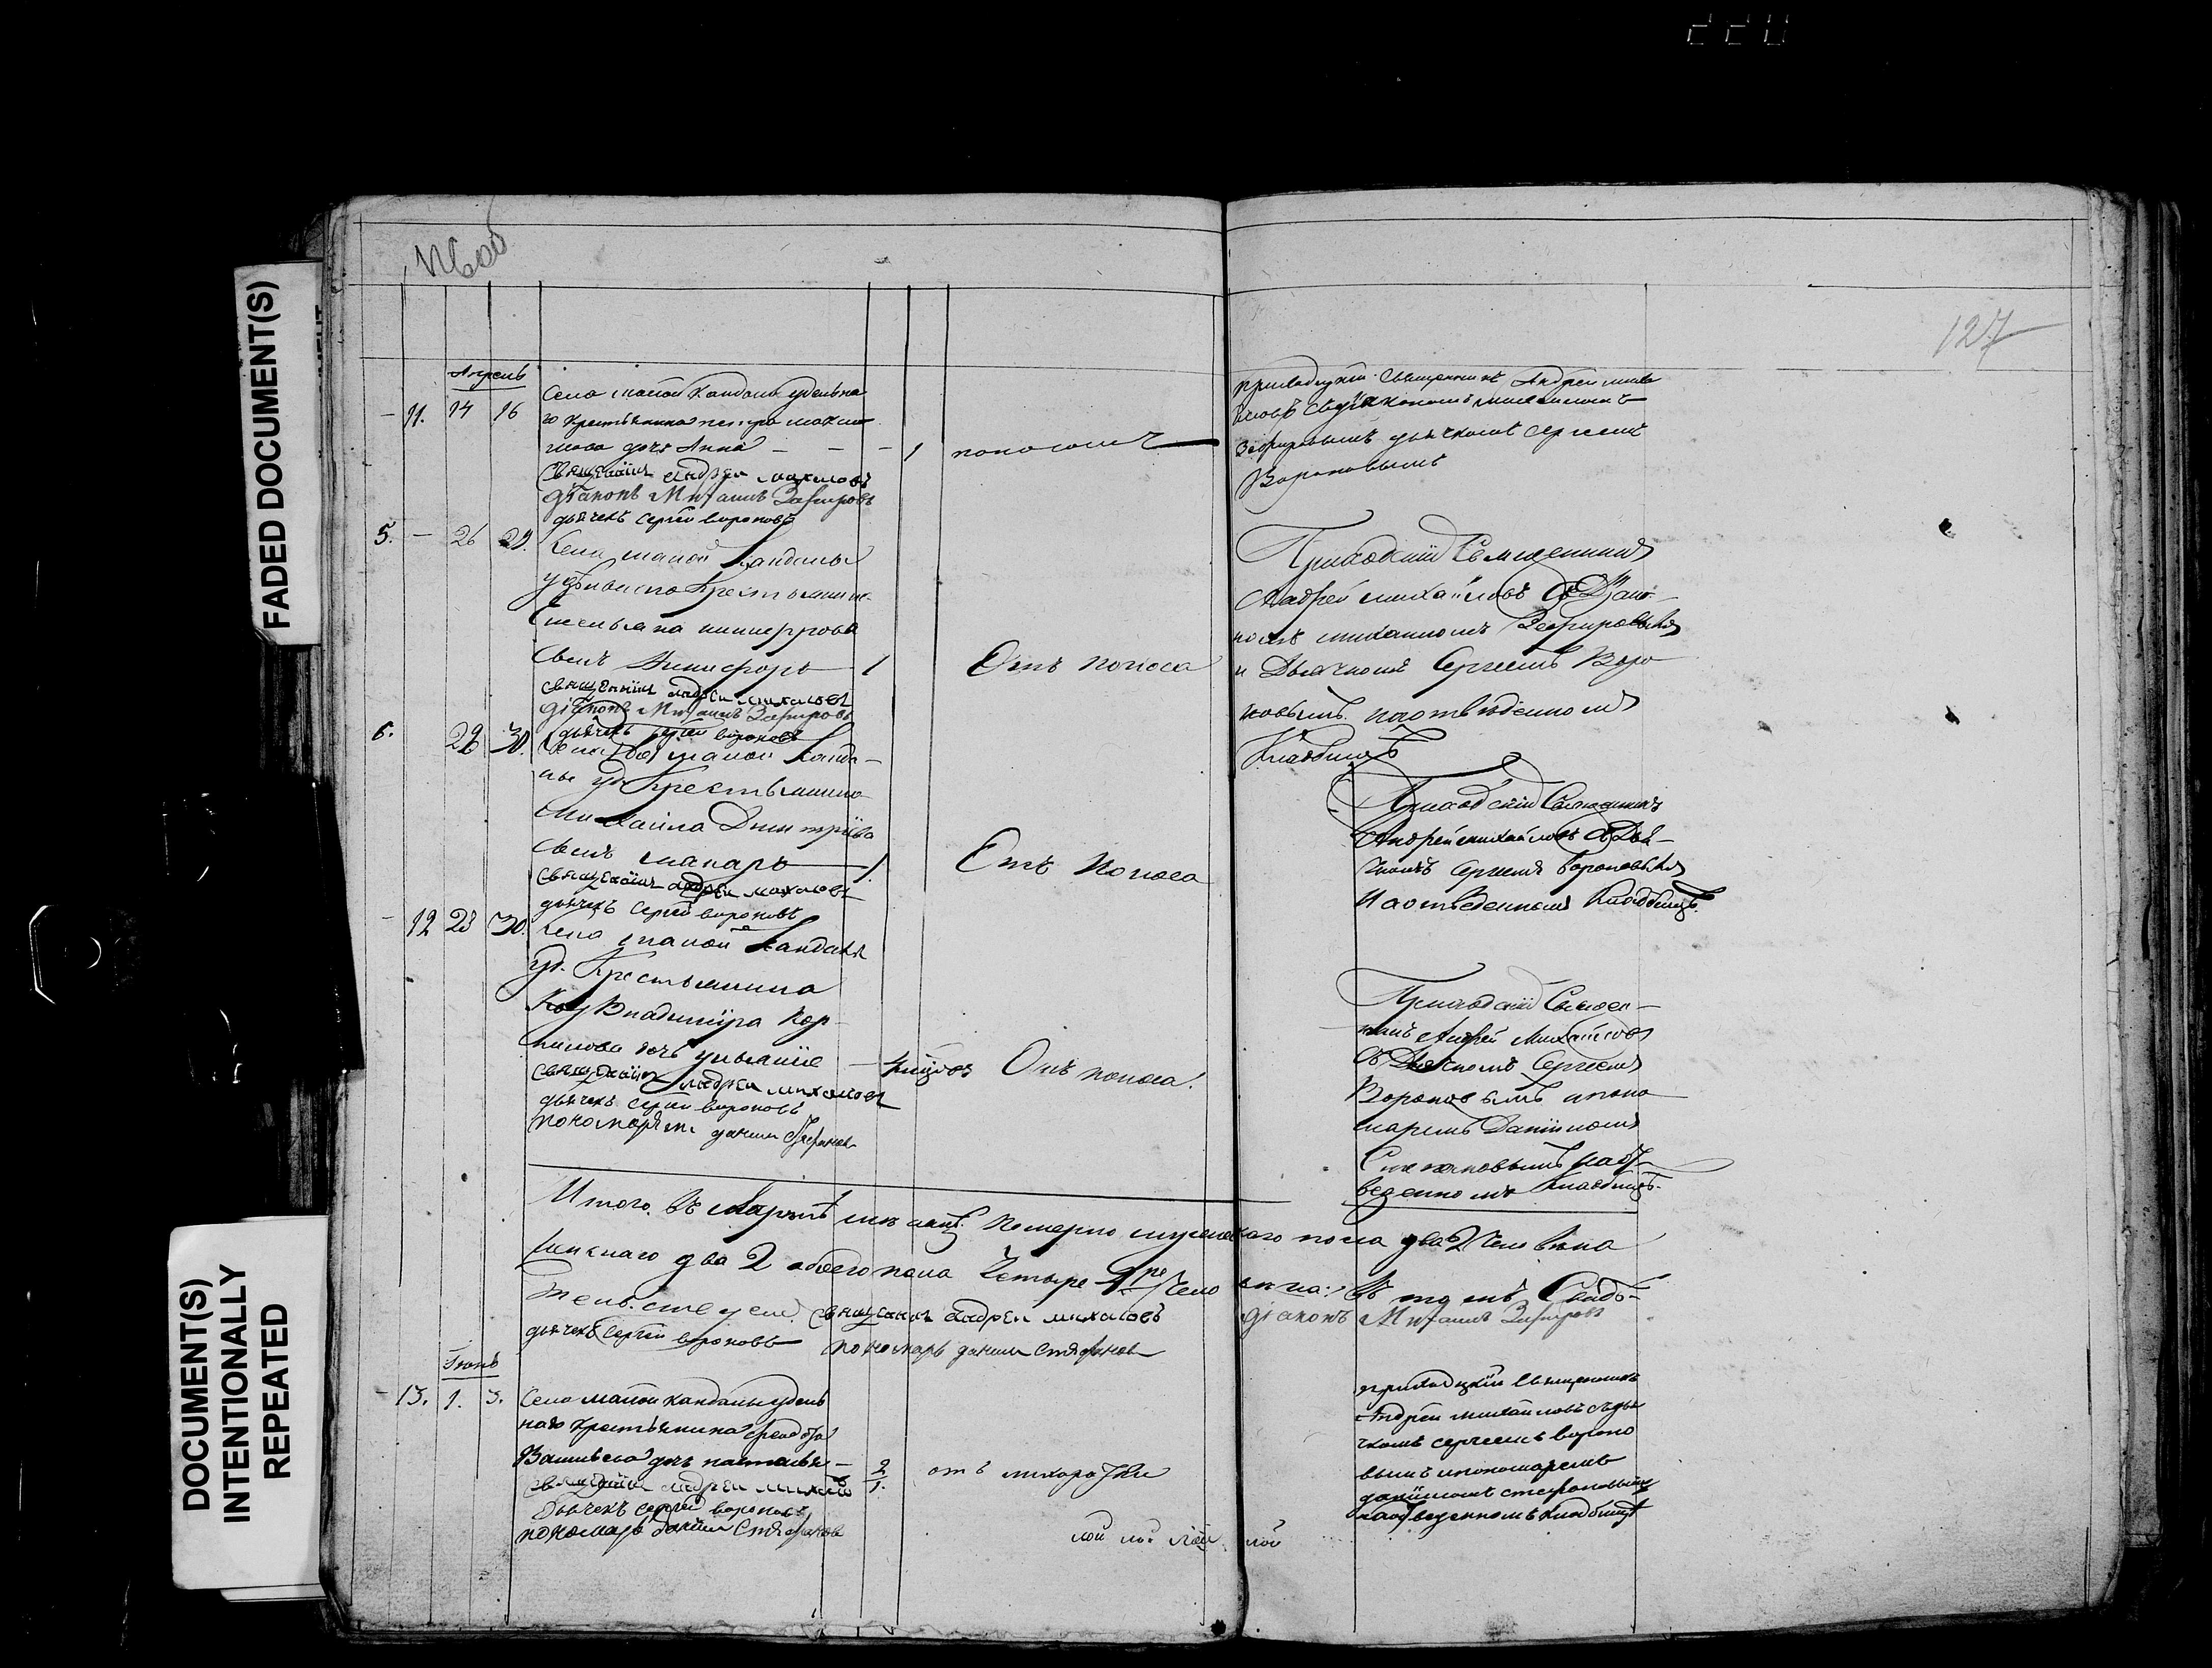 220
FADED DOCUMENT(S)
DOCUMENT(S)
INTENTIONALLY
REPEATED
127
Апрель
11. 14 16
Села малой Кандалы удельна
го крестьянина петра макси
мова дочь Анна — — — 1 поносомъ
Священникъ Андреи михаиловъ
діаконъ Михаилъ Зефировъ
дьячекъ Сергей вороновъ
приходскій священникъ Андрей миха
иловъ съ діакономъ михаиломъ
Зефировымъ дьячкомъ Сергеемъ
Вороновымъ
5. — 26 29. Села малой Кандалы
удѣльнаго Крестьянина
Сынъ Никифоръ 1 Отъ поноса
священникъ андреи михаиловъ
діаконъ Михаилъ Зефировъ
дьячекъ Сергей вороновъ
Приходскій Священникъ
Андрей михайловъ съ Діако
номъ михаиломъ Зефировымъ
и Дьячкомъ Сергеемъ Воро
новымъ на отвѣденномъ
Кладбищѣ
6. 28 30. Села малой Канда-
лы уд. Крестьянина
Михаила Дмитріева
Сынъ макаръ 1. Отъ Поноса
священникъ андреи михаиловъ
дьячекъ Сергей вороновъ
Приходскій Священникъ
Андрей михайловъ съ Дья-
чкомъ Сергеемъ Вороновымъ
На отведенномъ Кладбищѣ.
12 28 30. Села малой Кандалы
уд. Крестьянина
Владиміра Кор
нилова дочь уліанія Отъ поноса.
священникъ андреи михаиловъ
дьячекъ Сергей вороновъ
пономарь данилъ Стефановъ
Приходскій Священ-
никъ Андрей Михайловъ
съ Дьячкомъ Сергеемъ
Вороновымъ и поно
маремъ Даніиломъ
Стефановымъ на от
веденномъ Кладбищѣ.
Итого. Въ Апрелѣ мѣсяцѣ. Померло мужескаго пола два 2 человѣка
женскаго два 2 обоего пола Четыре 4 ре Чело вѣка: Въ томъ Свидѣ-
тельствуемъ. священникъ Андреи михаиловъ діаконъ Михаилъ Зефировъ
дьячекъ Сергей вороновъ пономарь данилъ Стефановъ
Іюнь
13. 1. 3. Села малой кандалы удель
наго крестьянина
Васильева дочь наталья — 2 отъ лихорадки
1.
священникъ андреи михаиловъ
Дьячекъ Сергей вороновъ
пономарь данилъ Стефановъ
приходскій священникъ
Андрей михайловъ съ дья
чкомъ сергеемъ вороно
вымъ и пономаремъ
даніиломъ стефановымъ
на отведенномъ кладбищѣ
лой лой лой лой